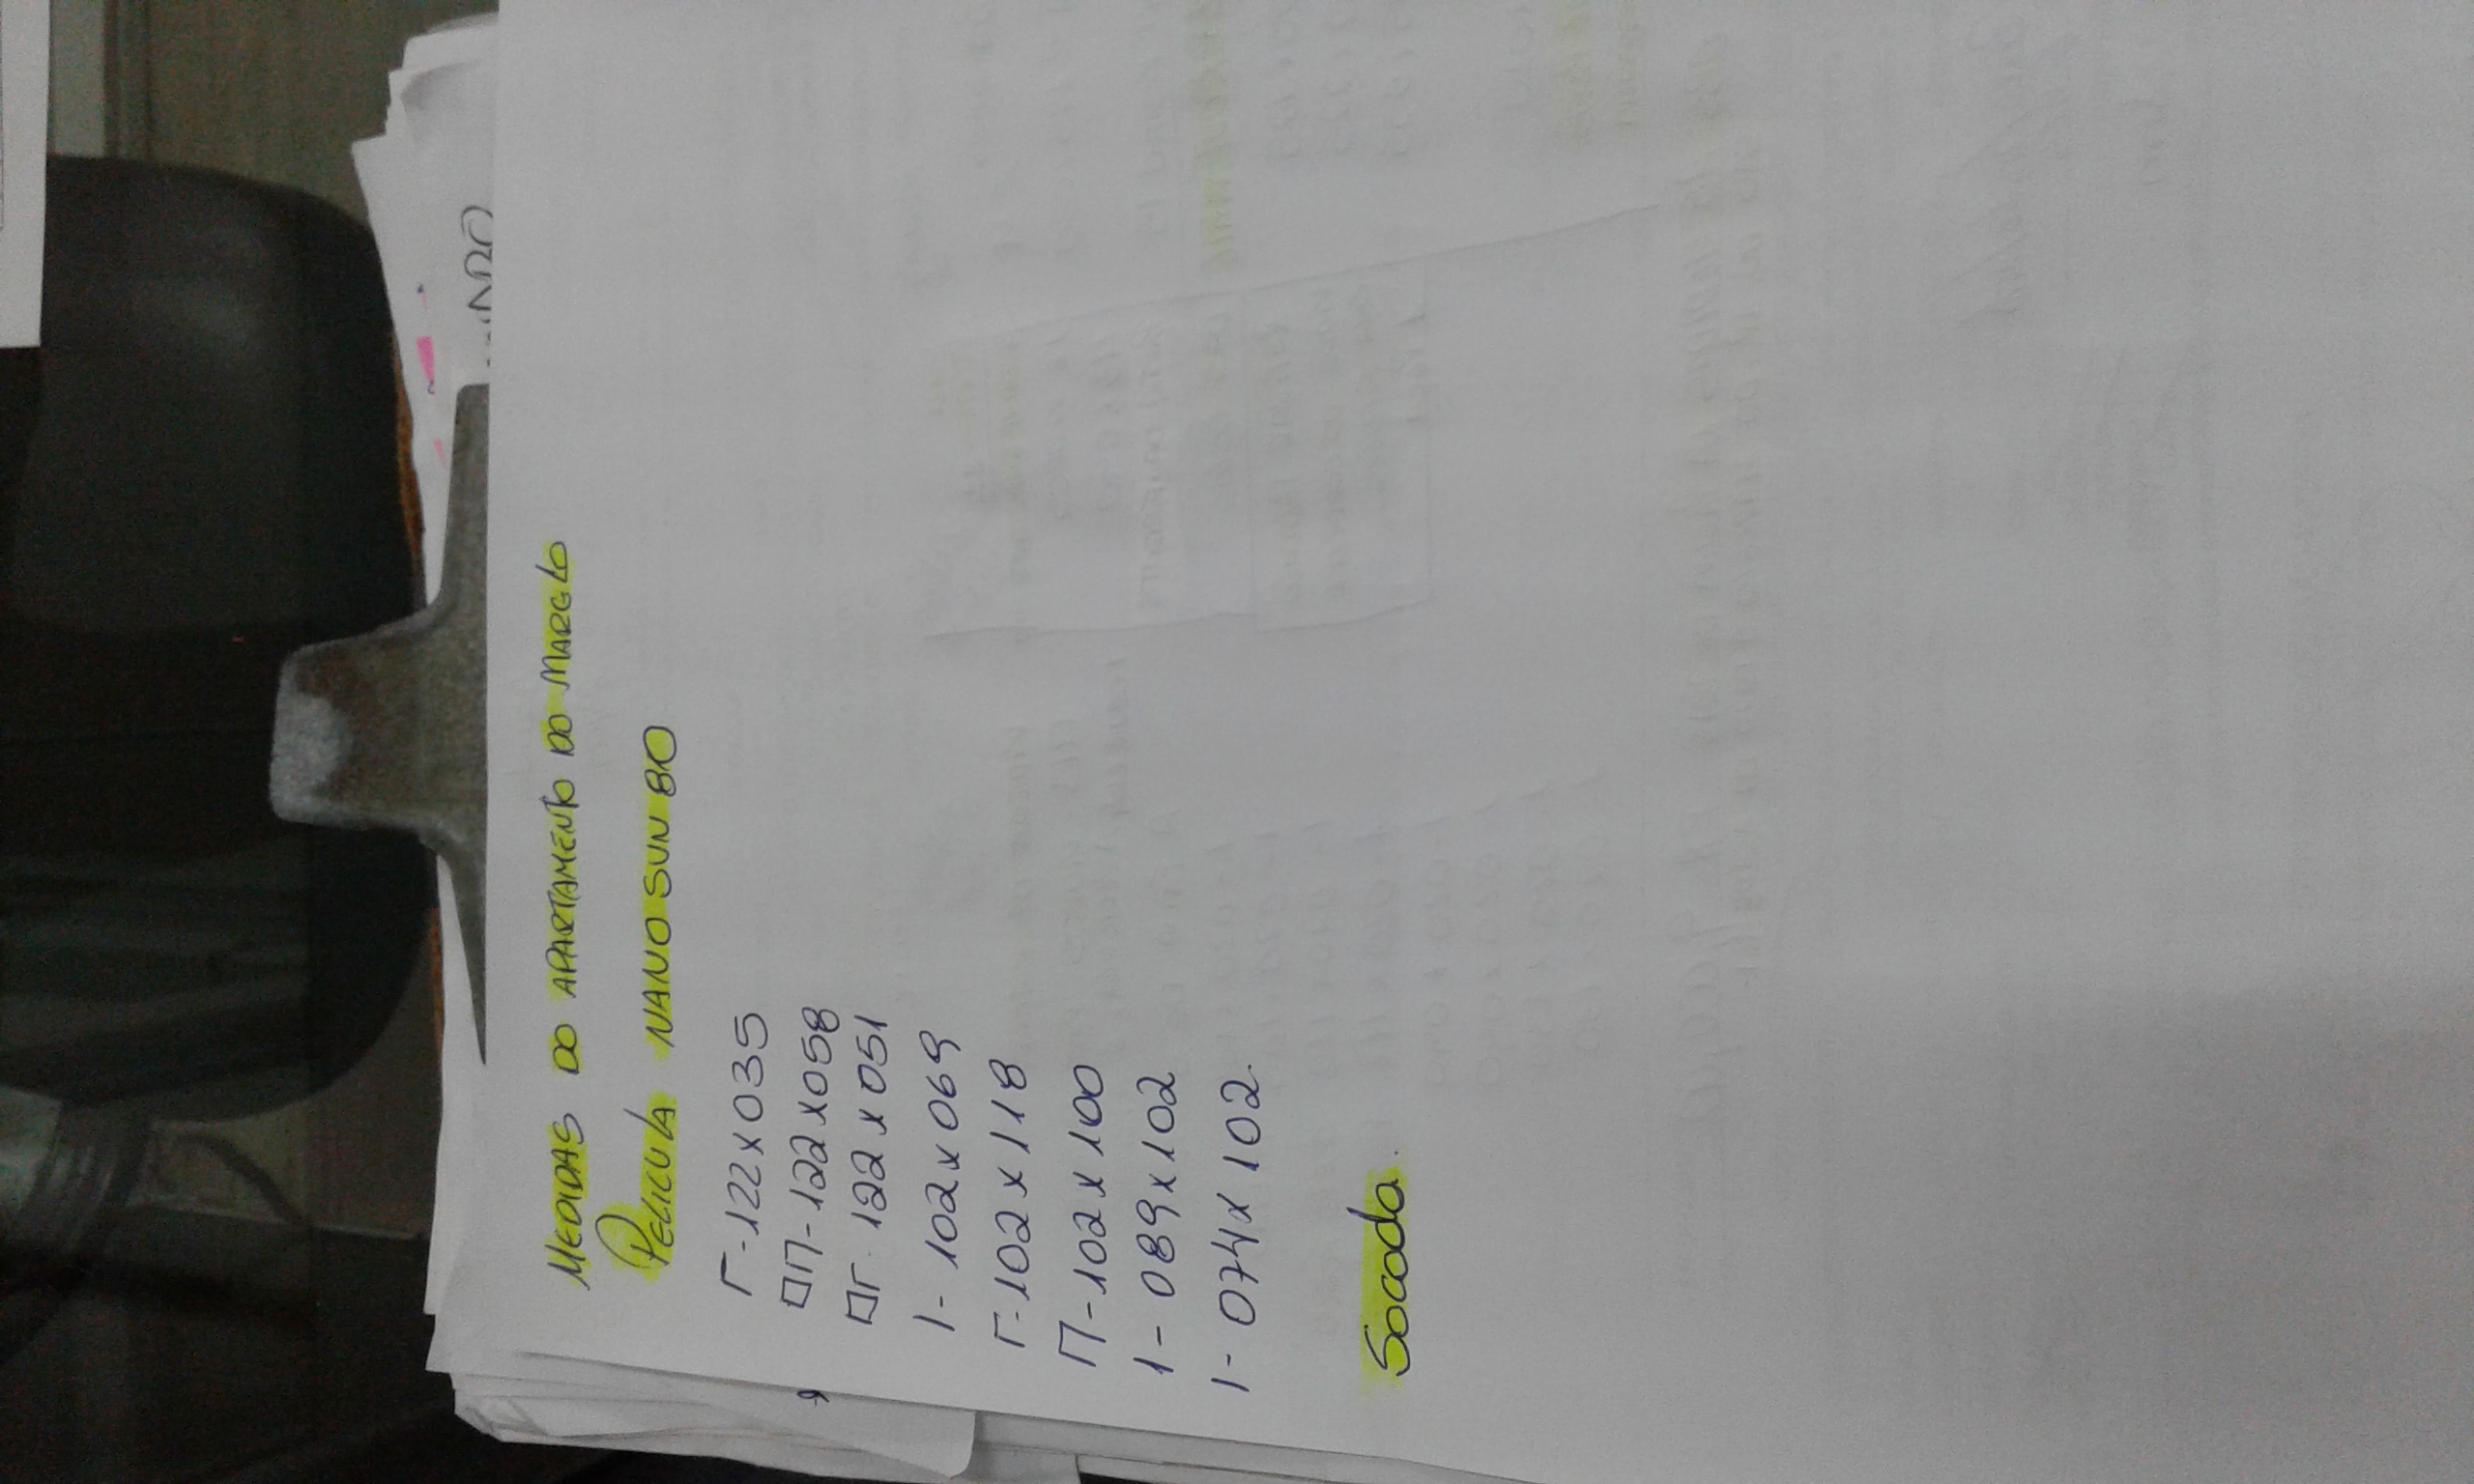 MEDIDAS DO APARTAMENTO DO MARCLO
PELICULA NANO SUN 80
Γ-122x035
□Π-122x058
□Γ-122x051
1-102x069
Γ-102x118
Π-102x100
1-089x102
1-074x102.
Sacada.